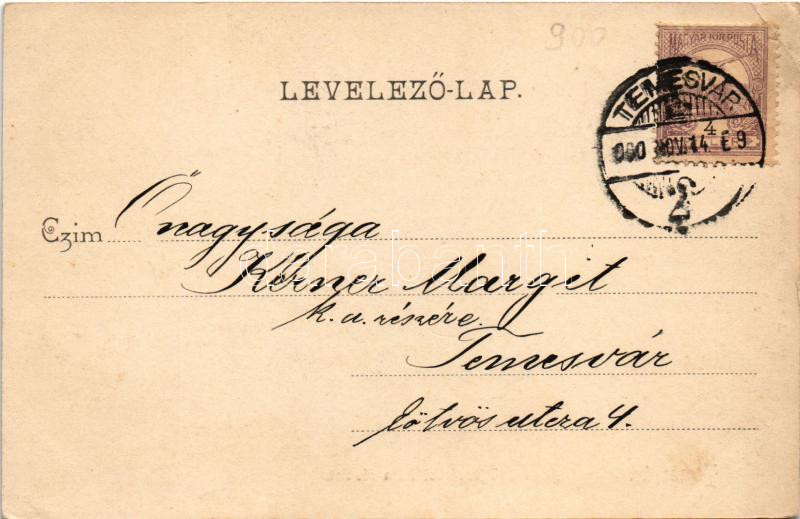 900
MAGYAR KIR. POSTA
LEVELEZŐ-LAP.
TEMESVÁR
4
900 NOV. 14. É 9
2
Czim Őnagysága
Körner Margit
k. a. részére
Temesvár
Eötvös utcza 4.
darabanth